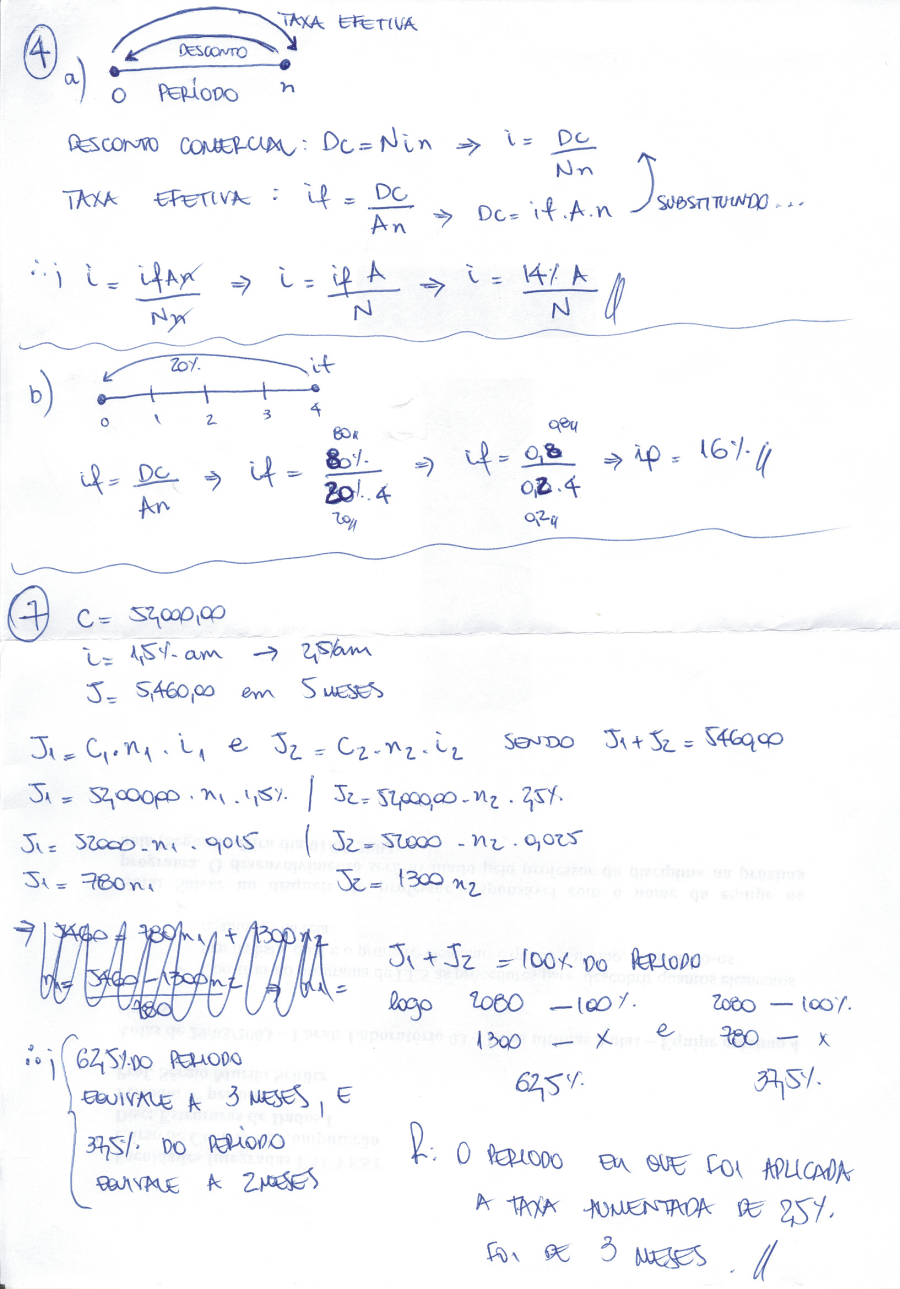 4
a)
TAXA EFETIVA
DESCONTO
0 PERÍODO n
DESCONTO COMERCIAL: Dc = Nin ⇒ i = Dc / Nn
TAXA EFETIVA : if = Dc / An ⇒ Dc = if.A.n SUBSTITUINDO...
∴ i = ifAn / Nn ⇒ i = if A / N ⇒ i = 14% A / N //
b)
20% if
0 1 2 3 4
80//
if = Dc / An ⇒ if = 80% / 20%.4 ⇒ if = 0,8 / 0,2.4 ⇒ if = 16% //
20// 0,2//
7
C = 52,000,00
i = 1,5% am → 2,5%am
J = 5,460,00 em 5 MESES
J1 = C1.n1.i1 e J2 = C2.n2.i2 SENDO J1 + J2 = 5460,00
J1 = 52,000,00 . n1 . 1,5% | J2 = 52,000,00 . n2 . 2,5%
J1 = 52000 . n1 . 0,015 | J2 = 52000 . n2 . 0,025
J1 = 780n1 J2 = 1300 n2
⇒ 5460 = 780n1 + 1300n2
n1 = 5460 - 1300n2 / 780 ⇒ n1 =
J1 + J2 = 100% DO PERIODO
logo 2080 — 100% 2080 — 100%
1300 — X e 780 — x
62,5% 37,5%
∴ 62,5% DO PERIODO
EQUIVALE A 3 MESES, E
37,5% DO PERÍODO
EQUIVALE A 2 MESES
R: O PERIODO EM QUE FOI APLICADA
A TAXA AUMENTADA DE 2,5%
FOI DE 3 MESES. //